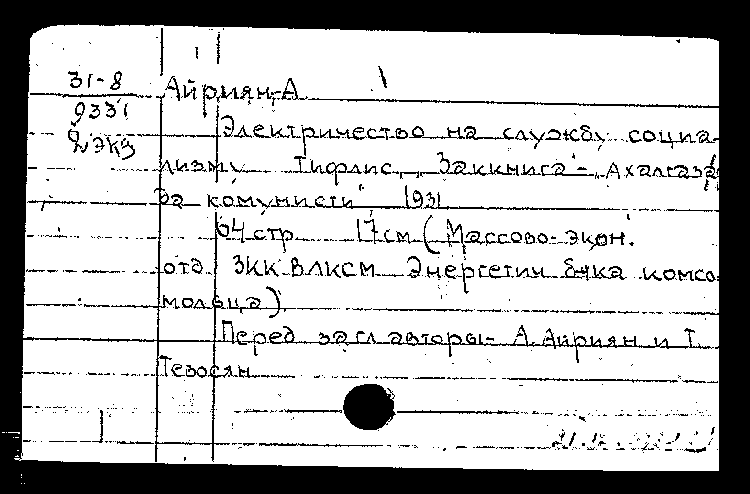 31-8
9331
2 экз
Айриян, А
Электричество на службу социа-
лизму Тифлис, „Заккнига" - „Ахалгазр
да комунисти" 1931
64 стр 17 см (Массово-экон.
отд ЗКК ВЛКСМ Энергетич б-чка комсо-
мольца).
Перед загл авторы - А. Айриян и Т.
Тевосян